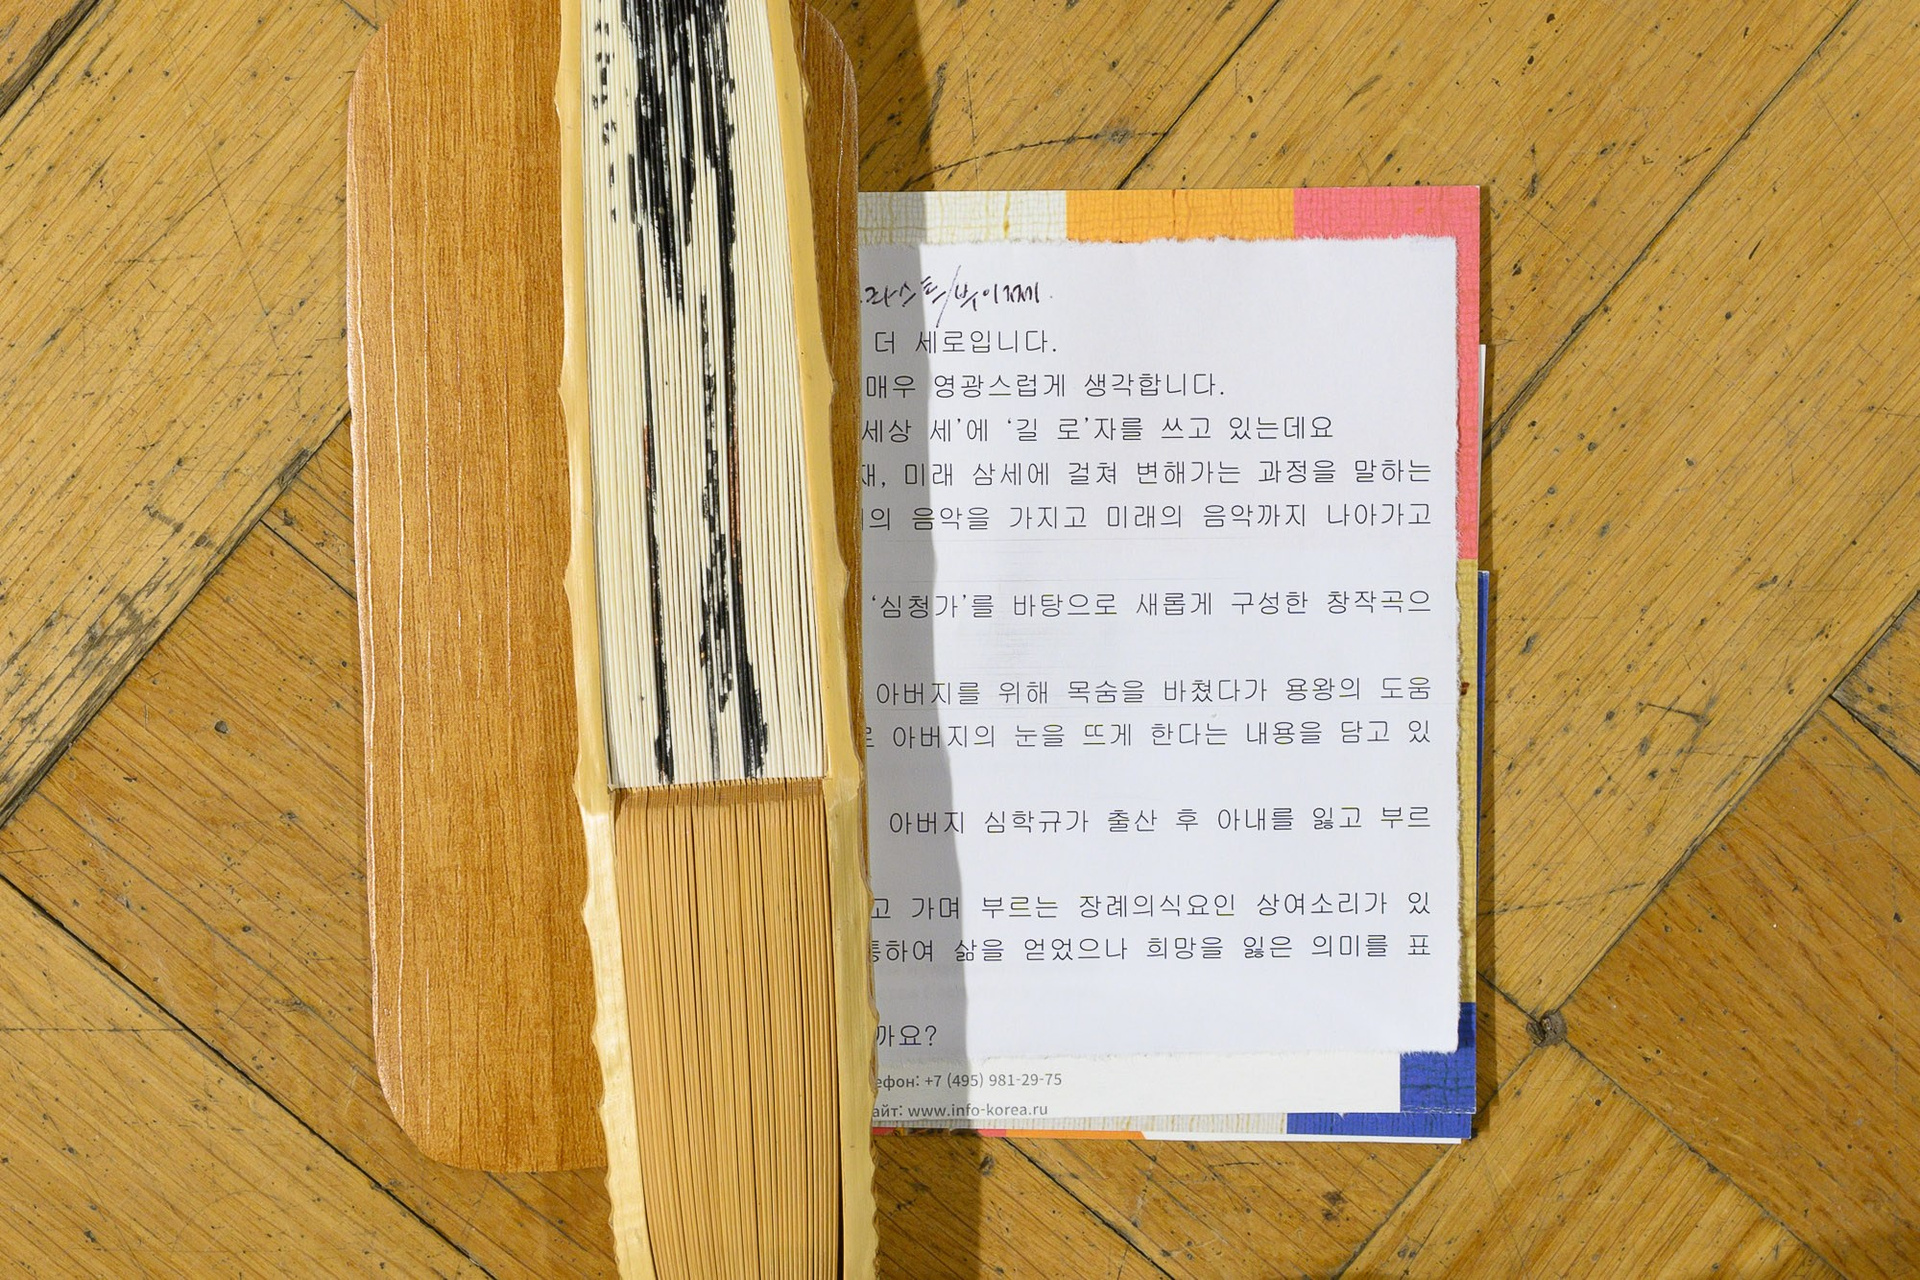 더 세로입니다.
매우 영광스럽게 생각합니다.
세상 세’에 ‘길 로’자를 쓰고 있는데요
미래 삼세에 걸쳐 변해가는 과정을 말하는
음악을 가지고 미래의 음악까지 나아가고
‘심청가’를 바탕으로 새롭게 구성한 창작곡으
아버지를 위해 목숨을 바쳤다가 용왕의 도움
아버지의 눈을 뜨게 한다는 내용을 담고 있
아버지 심학규가 출산 후 아내를 잃고 부르
가며 부르는 장례의식요인 상여소리가 있
삶을 얻었으나 희망을 잃은 의미를 표
까요?
ефон: +7 (495) 981-29-75
айт: www.info-korea.ru